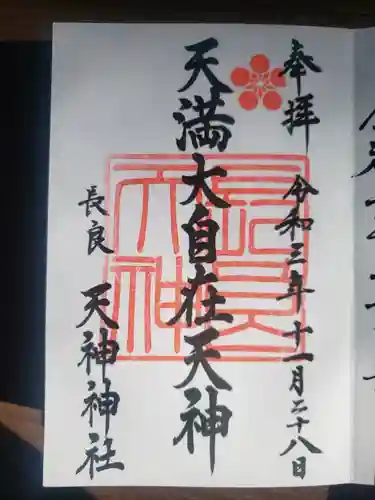 奉拝
令和三年十一月二十八日
天満大自在天神
長良
天神神社
長良天神